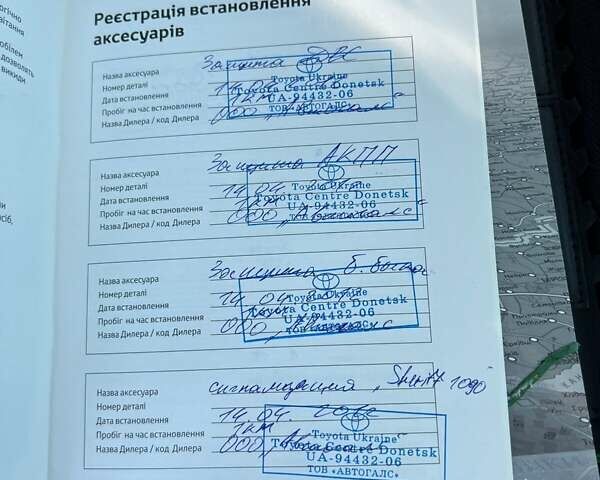 огічно
вітання
обілем
дозволять
викиди
Реєстрація встановлення
аксесуарів
Назва аксесуара Защита ДВС
Номер деталі
Дата встановлення 14.04.
Пробіг на час встановлення 1км
Назва Дилера / код Дилера ООО „Автогалс“
Toyota Ukraine
Toyota Centre Donetsk
UA-94432-06
ТОВ «АВТОГАЛС»
Назва аксесуара Защита АКПП
Номер деталі
Дата встановлення 14.04.
Пробіг на час встановлення 1км
Назва Дилера / код Дилера ООО „Автогалс“
Toyota Ukraine
Toyota Centre Donetsk
UA-94432-06
ТОВ «АВТОГАЛС»
Назва аксесуара Защита
Номер деталі
Дата встановлення 14.04.
Пробіг на час встановлення
Назва Дилера / код Дилера ООО
Toyota Ukraine
Toyota Centre Donetsk
UA-94432-06
ТОВ «АВТОГАЛС»
Назва аксесуара сигнализация „Sheriff 1090
Номер деталі
Дата встановлення 14.04.
Пробіг на час встановлення 1км
Назва Дилера / код Дилера ООО
Toyota Ukraine
Toyota Centre Donetsk
UA-94432-06
ТОВ «АВТОГАЛС»